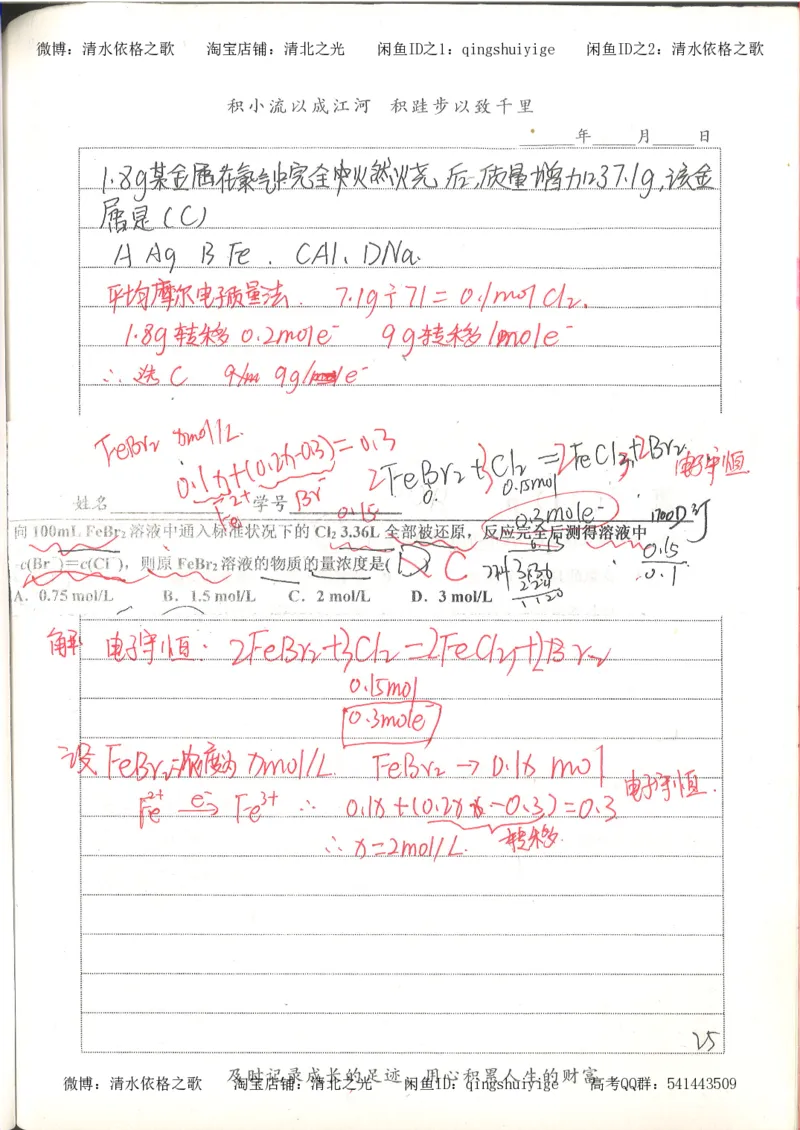 微博：清水依格之歌 淘宝店铺：清北之光 闲鱼ID之1：qingshuiyige 闲鱼ID之2：清水依格之歌
积小流以成江河 积跬步以致千里
年 月 日
1.8g某金属在氯气中完全燃烧后,质量增加7.1g,该金
属是(C)
A Ag B Fe. C Al. D Na.
平均摩尔电子质量法. 7.1g÷71=0.1molCl₂.
1.8g转移0.2mole⁻ 9g转移1mole⁻
∴选C 9g/e⁻
FeBr₂ xmol/L.
0.1x+(0.2x-0.3)=0.3
Fe²⁺ Br⁻
2FeBr₂+3Cl₂=2FeCl₃+2Br₂ 电子守恒
0.15mol
0.3mole⁻
0.15
姓名 学号
向 100mL FeBr₂ 溶液中通入标准状况下的 Cl₂ 3.36L 全部被还原，反应完全后测得溶液中
c(Br⁻)=c(Cl⁻)，则原 FeBr₂ 溶液的物质的量浓度是( ) C
0.15
0.1
A．0.75 mol/L B．1.5 mol/L C．2 mol/L D．3 mol/L
解 电子守恒: 2FeBr₂+3Cl₂=2FeCl₃+2Br₂
0.15mol
0.3mole⁻
设FeBr₂浓度为xmol/L. FeBr₂→0.1x mol
Fe²⁺ e⁻→ Fe³⁺ ∴ 0.1x+(0.2x-0.3)=0.3 电子守恒.
∴x=2mol/L. 转移
25
及时记录成长的足迹 用心积累人生的财富
微博：清水依格之歌 淘宝店铺：清北之光 闲鱼ID：qingshuiyige 高考QQ群：541443509